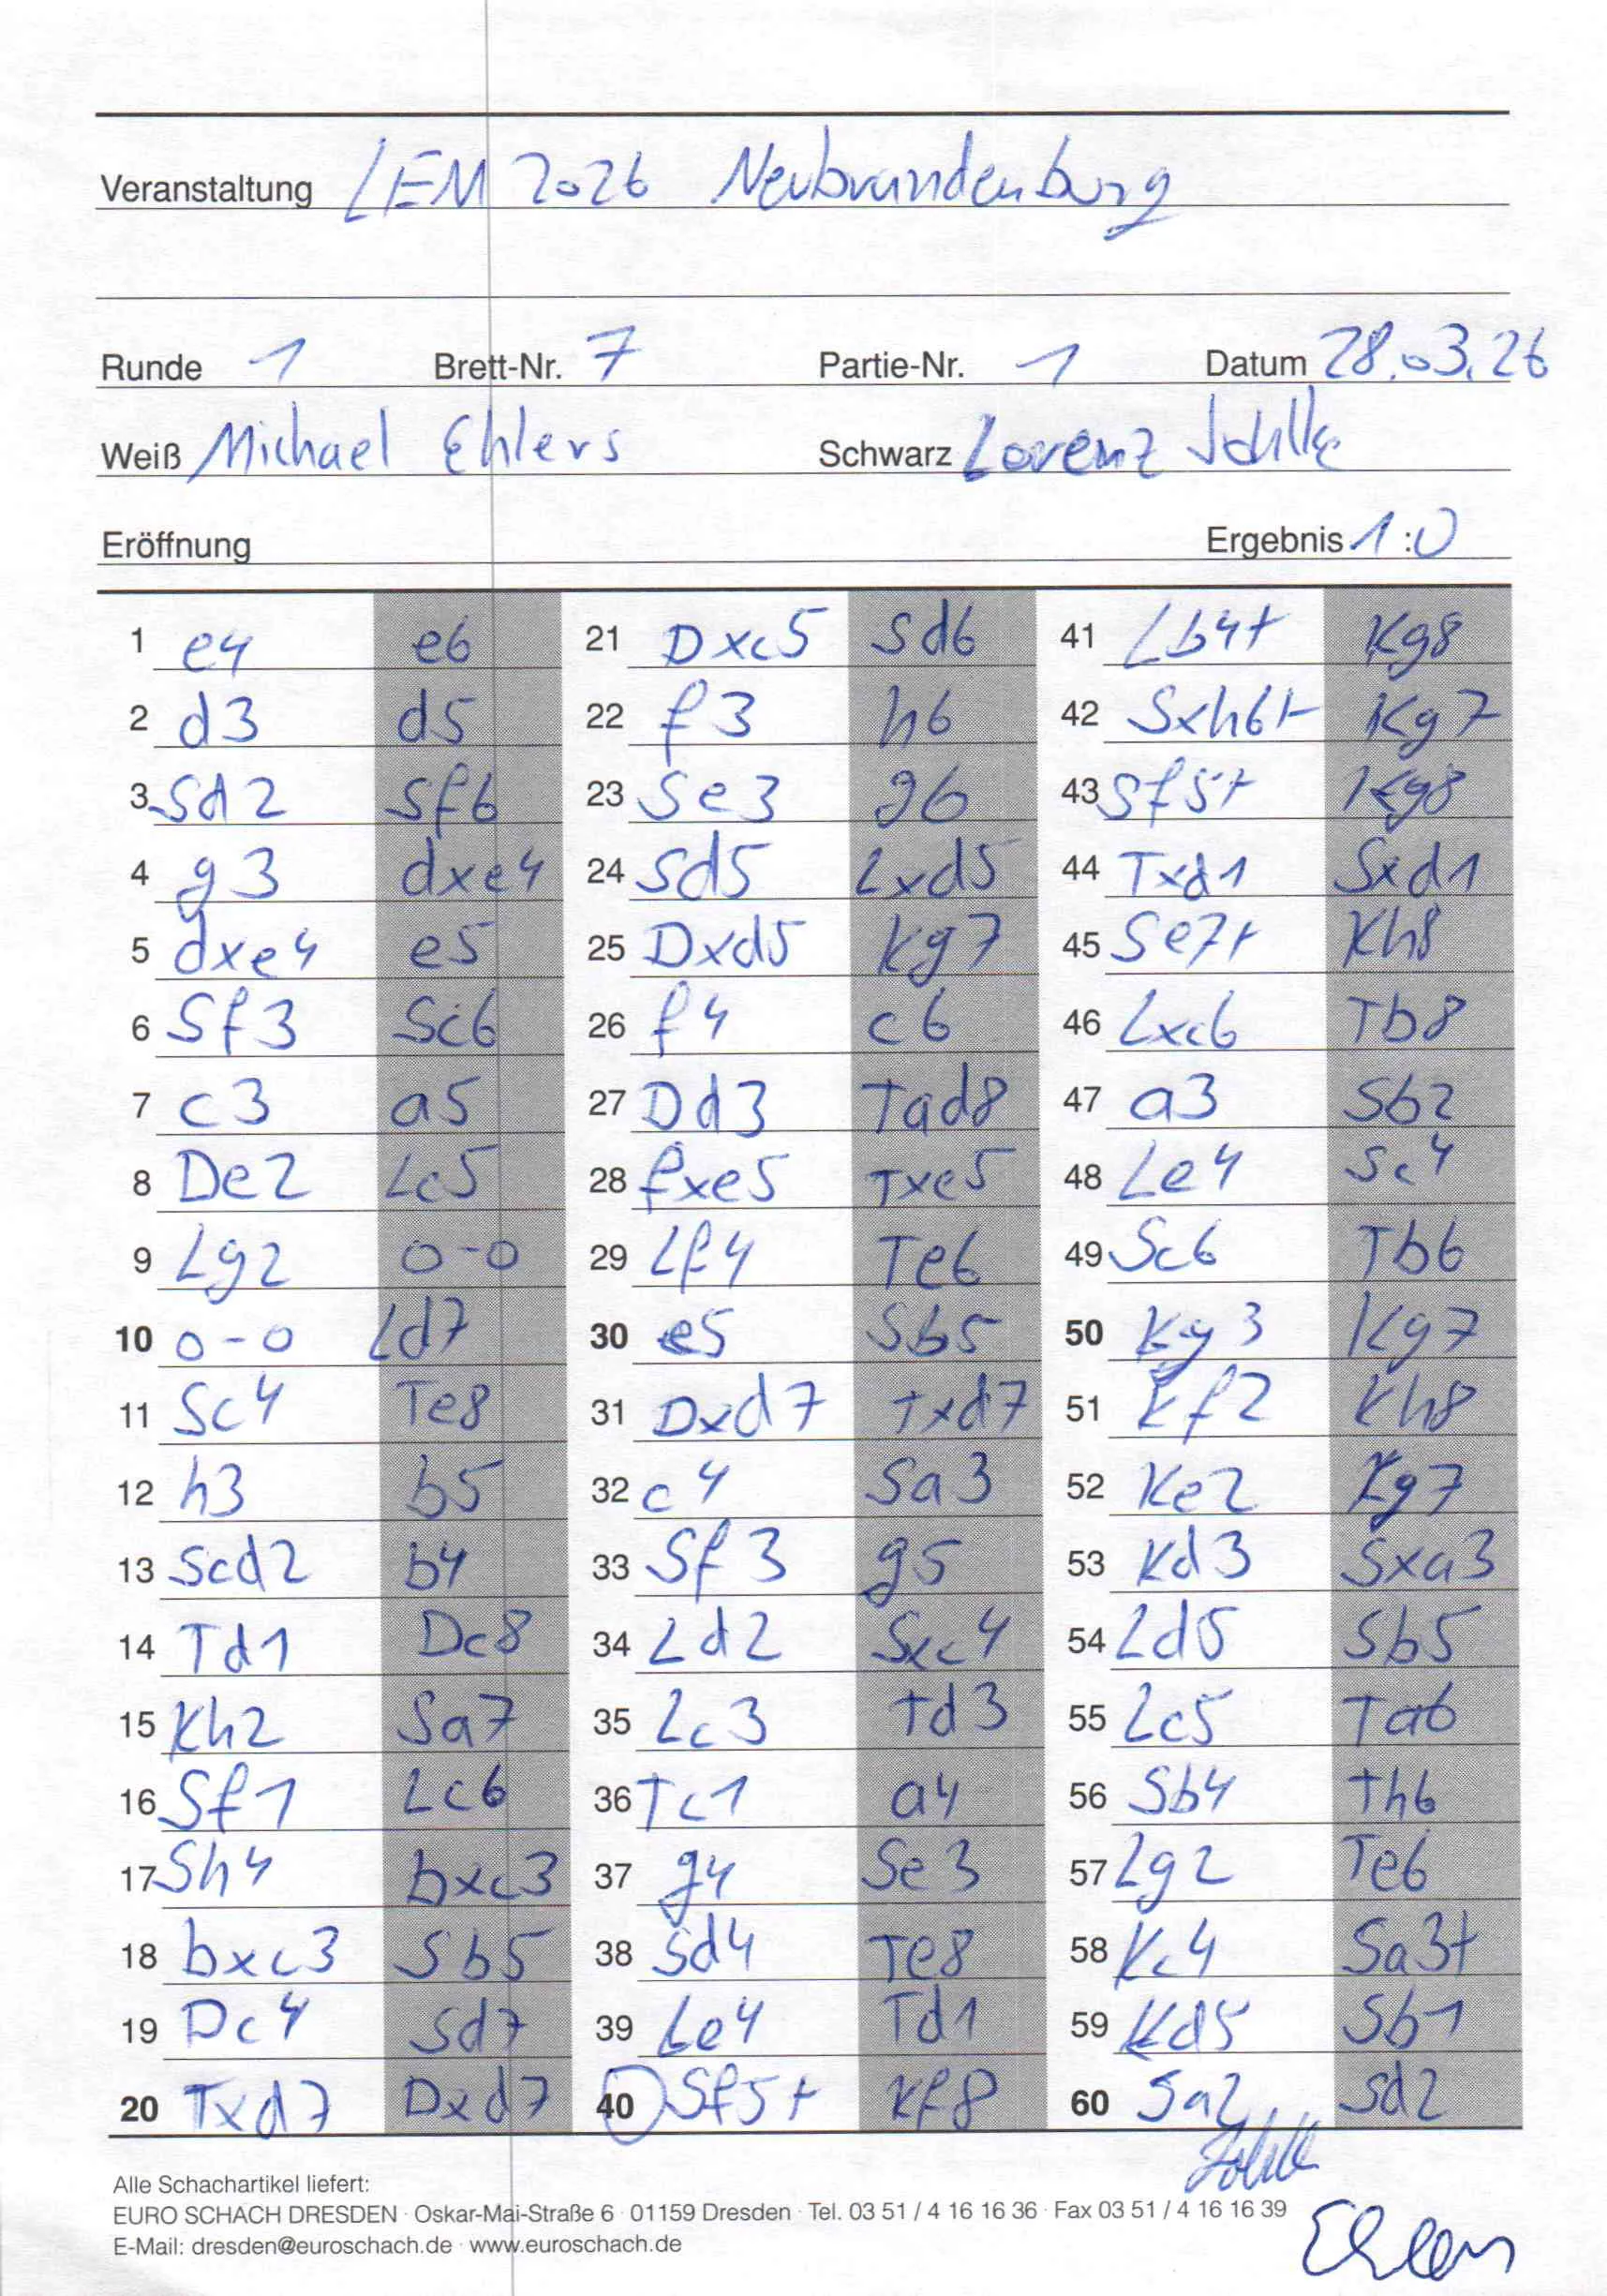 Veranstaltung LEM 2026 Neubrandenburg
Runde 1 Brett-Nr. 7 Partie-Nr. 1 Datum 28.03.26
Weiß Michael Ehlers Schwarz Lorenz
Eröffnung Ergebnis 1:0
1 e4 e6 21 Dxc5 Sd6 41 Lb4+ Kg8
2 d3 d5 22 f3 h6 42 Sxh6+ Kg7
3 Sd2 Sf6 23 Se3 g6 43 Sf5+ Kg8
4 g3 dxe4 24 Sd5 Lxd5 44 Txd1 Sxd1
5 dxe4 e5 25 Dxd5 Kg7 45 Se7+ Kh8
6 Sf3 Sc6 26 f4 c6 46 Lxc6 Tb8
7 c3 a5 27 Dd3 Tad8 47 a3 Sb2
8 De2 Lc5 28 fxe5 Txe5 48 Le4 Sc4
9 Lg2 0-0 29 Lf4 Te6 49 Sc6 Tb6
10 0-0 Ld7 30 e5 Sb5 50 Kg3 Kg7
11 Sc4 Te8 31 Dxd7 Txd7 51 Kf2 Kh8
12 h3 b5 32 c4 Sa3 52 Ke2 Kg7
13 Scd2 b4 33 Sf3 g5 53 Kd3 Sxa3
14 Td1 Dc8 34 Ld2 Sxc4 54 Ld5 Sb5
15 Kh2 Sa7 35 Lc3 Td3 55 Lc5 Ta6
16 Sf1 Lc6 36 Tc1 a4 56 Sb4 Th6
17 Sh4 bxc3 37 g4 Se3 57 Lg2 Te6
18 bxc3 Sb5 38 Sd4 Te8 58 Kc4 Sa3+
19 Dc4 Sd7 39 Le4 Td1 59 Kd5 Sb1
20 Txd7 Dxd7 40 Sf5+ Kf8 60 Sa2 Sd2
Alle Schachartikel liefert:
EURO SCHACH DRESDEN · Oskar-Mai-Straße 6 · 01159 Dresden · Tel. 03 51 / 4 16 16 36 · Fax 03 51 / 4 16 16 39
E-Mail: dresden@euroschach.de · www.euroschach.de